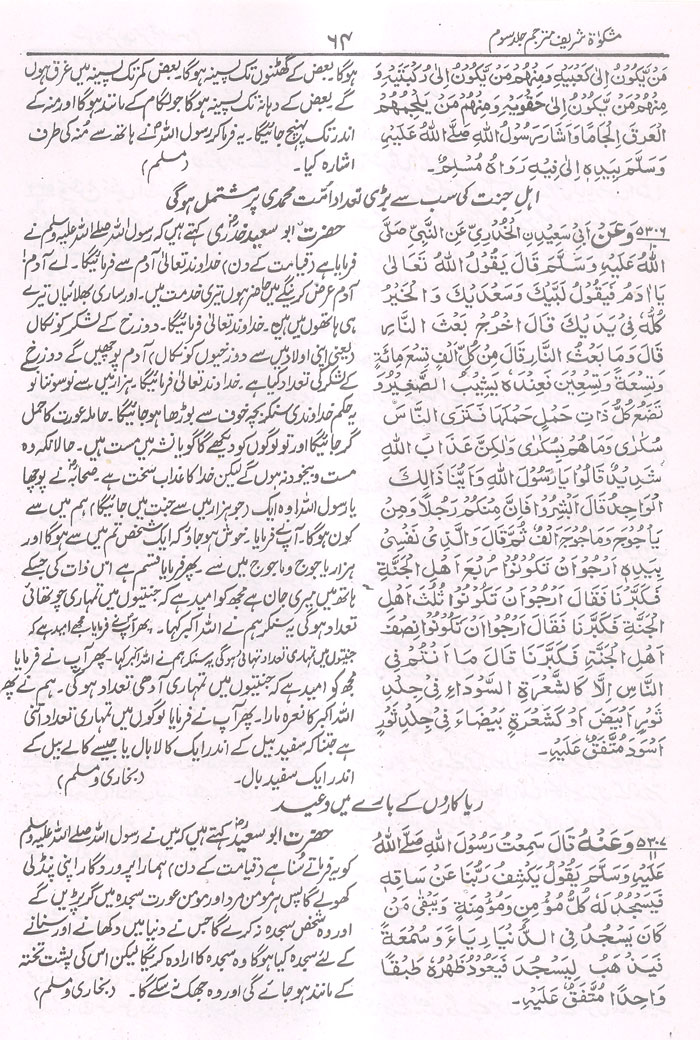 مشکوٰۃ شریف مترجم جلد سوم
۶۴
مَنْ یَّکُوْنُ اِلٰی کَعْبَیْہِ وَمِنْھُمْ مَنْ یَّکُوْنُ اِلٰی رُکْبَتَیْہِ وَ
مِنْھُمْ مَنْ یَّکُوْنُ اِلٰی حَقْوَیْہِ وَمِنْھُمْ مَنْ یُّلْجِمُھُمُ
الْعَرَقُ اِلْجَامًا وَاَشَارَ رَسُوْلُ اللہِ صَلَّے اللہُ عَلَیْہِ
وَسَلَّمَ بِیَدِہٖ اِلٰی فِیْہِ رَوَاہُ مُسْلِمٌ۔
ہوگا۔ بعض کے گھٹنوں تک پسینہ ہوگا۔ بعض کمر تک پسینہ میں غرق ہوں
گے بعض کے دہانہ تک پسینہ ہوگا جو لگام کے مانند ہوگا اور منہ کے
اندر تک پہنچ جائیگا۔ یہ فرما کر رسول اللہؐ نے ہاتھ سے مُنہ کی طرف
اشارہ کیا۔ (مسلم)
اہل جنت کی سب سے بڑی تعداد اُمّت محمدی پر مشتمل ہوگی
۵۳۰۶ وَعَنْ اَبِیْ سَعِیْدِنِ الْخُدْرِیِّ عَنِ النَّبِیِّ صَلَّی
اللہُ عَلَیْہِ وَسَلَّمَ قَالَ یَقُوْلُ اللہُ تَعَالٰی
یَا اٰدَمُ فَیَقُوْلُ لَبَّیْکَ وَسَعْدَیْکَ وَالْخَیْرُ
کُلُّہٗ فِیْ یَدَیْکَ قَالَ اَخْرِجْ بَعْثَ النَّاسِ
قَالَ وَمَا بَعْثُ النَّارِ قَالَ مِنْ کُلِّ اَلْفٍ تِسْعَ مِائَۃٍ
وَتِسْعَۃً وَّتِسْعِیْنَ فَعِنْدَہٗ یَشِیْبُ الصَّغِیْرُ وَ
تَضَعُ کُلُّ ذَاتِ حَمْلٍ حَمْلَھَا فَتَرَی النَّاسَ
سُکَارٰی وَمَاھُمْ بِسُکَارٰی وَلٰکِنَّ عَذَابَ اللہِ
شَدِیْدٌ قَالُوْا یَا رَسُوْلَ اللہِ وَاَیُّنَا ذَالِکَ
الْوَاحِدُ قَالَ اَبْشِرُوْا فَاِنَّ مِنْکُمْ رَجُلًا وَمِنْ
یَاْجُوْجَ وَمَاْجُوْجَ اَلْفٌ ثُمَّ قَالَ وَالَّذِیْ نَفْسِیْ
بِیَدِہٖ اَرْجُوْ اَنْ تَکُوْنُوْا رُبُعَ اَھْلِ الْجَنَّۃِ
فَکَبَّرْنَا فَقَالَ اَرْجُوْ اَنْ تَکُوْنُوْا ثُلُثَ اَھْلِ
الْجَنَّۃِ فَکَبَّرْنَا فَقَالَ اَرْجُوْا اَنْ تَکُوْنُوْا نِصْفَ
اَھْلِ الْجَنَّۃِ فَکَبَّرْنَا قَالَ مَا اَنْتُمْ فِی
النَّاسِ اِلَّا کَالشَّعْرَۃِ السَّوْدَاءِ فِیْ جِلْدِ
ثَوْرٍ اَبْیَضَ اَوْ کَشَعْرَۃٍ بَیْضَاءَ فِیْ جِلْدِ ثَوْرٍ
اَسْوَدَ مُتَّفَقٌ عَلَیْہِ۔
حضرت ابو سعید خدریؓ کہتے ہیں کہ رسول اللہ صلے اللہ علیہ وسلم نے
فرمایا ہے (قیامت کے دن) خداوند تعالیٰ آدم سے فرمائیگا۔ اے آدم!
آدم عرض کرینگے میں حاضر ہوں تیری خدمت میں۔ اور ساری بھلائیاں تیرے
ہی ہاتھوں میں ہیں۔ خداوند تعالیٰ فرمائیگا۔ دوزخ کے لشکر کو نکال
(یعنی اپنی اولاد میں سے دوزخیوں کو نکال) آدم پوچھیں گے دوزخ
کے لشکر کی تعداد کیا ہے۔ خداوند تعالیٰ فرمائیگا۔ ہزار میں سے نو سو ننانو
یہ حکم خداوندی سنکر بچہ خوف سے بوڑھا ہو جائیگا۔ حاملہ عورت کا حمل
گر جائیگا اور تو لوگوں کو دیکھے گا گویا نشہ میں مست ہیں۔ حالانکہ وہ
مست و بیخود نہ ہوں گے لیکن خدا کا عذاب سخت ہے۔ صحابہؓ نے پوچھا
یا رسول اللہ! وہ ایک (جو ہزار میں سے جنت میں جائیگا) ہم میں سے
کون ہوگا۔ آپؐ نے فرمایا۔ خوش ہو جاؤ کہ ایک شخص تم میں سے ہوگا اور
ہزار یاجوج و ماجوج میں سے۔ پھر فرمایا قسم ہے اس ذات کی جسکے
ہاتھ میں میری جان ہے مجھ کو امید ہے کہ جنتیوں میں تمہاری چوتھائی
تعداد ہوگی یہ سنکر ہم نے اللہ اکبر کہا۔ پھر آپؐ نے فرمایا مجھے امید ہے کہ
جنتیوں میں تمہاری تعداد تہائی ہوگی یہ سنکر ہم نے اللہ اکبر کہا۔ پھر آپ نے فرمایا
مجھ کو امید ہے کہ جنتیوں میں تمہاری آدھی تعداد ہوگی۔ ہم نے پھر
اللہ اکبر کا نعرہ مارا۔ پھر آپ نے فرمایا لوگوں میں تمہاری تعداد اتنی
ہے جتنا کہ سفید بیل کے اندر ایک کالا بال یا جیسے کالے بیل کے
اندر ایک سفید بال۔ (بخاری و مسلم)
ریاکاروں کے بارے میں وعید
۵۳۰۷ وَعَنْہُ قَالَ سَمِعْتُ رَسُوْلَ اللہِ صَلَّے اللہُ
عَلَیْہِ وَسَلَّمَ یَقُوْلُ یَکْشِفُ رَبُّنَا عَنْ سَاقِہٖ
فَیَسْجُدُ لَہٗ کُلُّ مُؤْمِنٍ وَمُؤْمِنَۃٍ وَیَبْقٰی مَنْ
کَانَ یَسْجُدُ فِی الدُّنْیَا رِیَاءً وَسُمْعَۃً
فَیَذْھَبُ لِیَسْجُدَ فَیَعُوْدُ ظَھْرُہٗ طَبَقًا
وَاحِدًا مُتَّفَقٌ عَلَیْہِ۔
حضرت ابو سعیدؓ کہتے ہیں کہ میں نے رسول اللہ صلے اللہ علیہ وسلم
کو یہ فرماتے سُنا ہے (قیامت کے دن) ہمارا پروردگار اپنی پنڈلی
کھولے گا پس ہر مومن مرد اور مومن عورت سجدہ میں گر پڑیں گے
اور وہ شخص سجدہ نہ کرے گا جس نے دنیا میں دکھانے اور سنانے
کے لئے سجدہ کیا ہوگا وہ سجدہ کا ارادہ کریگا لیکن اس کی پشت تختہ
کے مانند ہو جائے گی اور وہ جھک نہ سکے گا۔ (بخاری و مسلم)